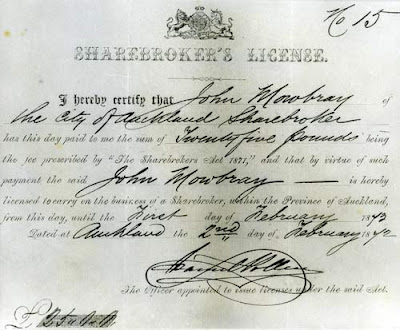 No 15
SHAREBROKER'S LICENSE.
I hereby certify that John Mowbray of
the City of Auckland Sharebroker
has this day paid to me the sum of Twenty five Pounds being
the fee prescribed by "The Sharebrokers Act 1871," and that by virtue of such
payment the said John Mowbray — is hereby
licensed to carry on the business of a Sharebroker, within the Province of Auckland,
from this day, until the First day of February 1873
Dated at Auckland the 2nd day of February 1872
The Officer appointed to issue licenses under the said Act.
£